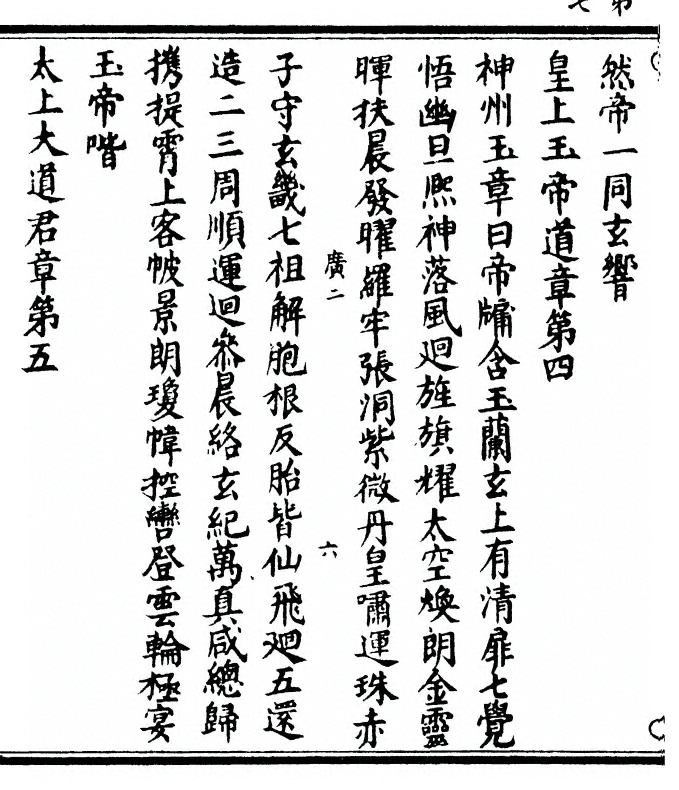 然帝一同玄響
皇上玉帝道章第四
神州玉章曰帝牗含玉蘭玄上有清扉七覺
悟幽旦熙神落風迴旌旗耀太空煥朗金靈
暉扶晨發曜羅牢張洞紫微丹皇嘯運珠赤
廣二
六
子守玄畿七祖解胞根反胎皆仙飛𢌞五還
造二三周順運迴叅晨絡玄紀萬真咸總歸
携提霄上客帔景朗瓊幃控轡登雲輪極宴
玉帝階
太上大道君章第五